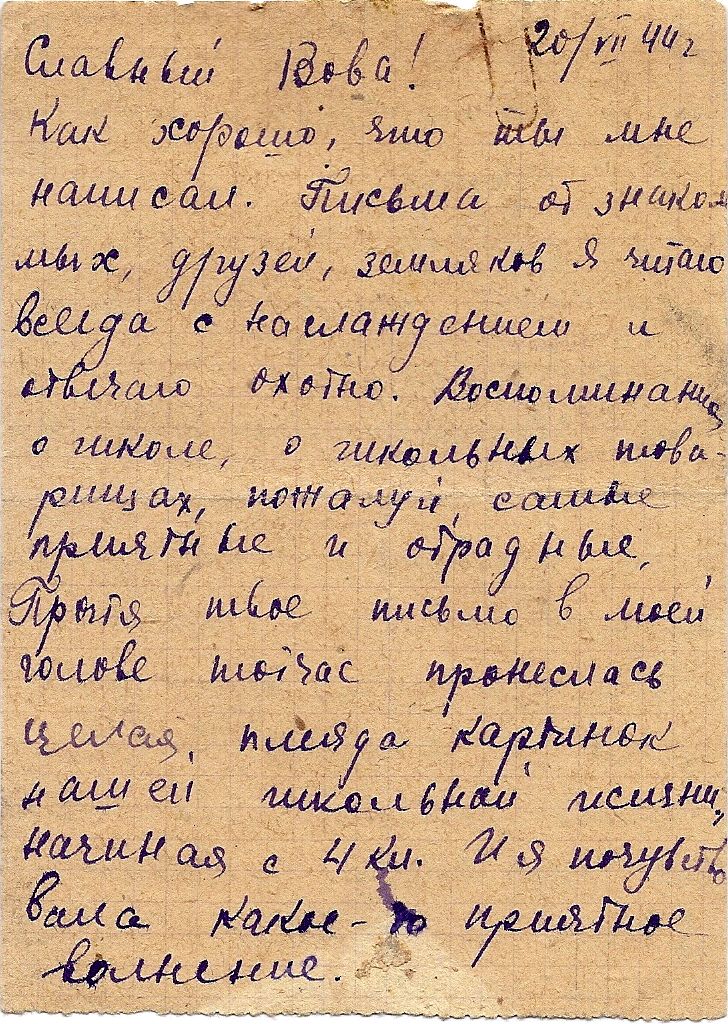 20/VII 44 г
Славный Вова!
Как хорошо, что ты мне
написал. Письма от знако-
мых, друзей, земляков я читаю
всегда с наслаждением и
отвечаю охотно. Воспоминания
о школе, о школьных това-
рищах, пожалуй, самые
приятные и отрадные.
Прочтя твое письмо в моей
голове тотчас пронеслась
целая плеяда картинок
нашей школьной жизни,
начиная с 4 кл. И я почувство
вала какое-то приятное
волнение.